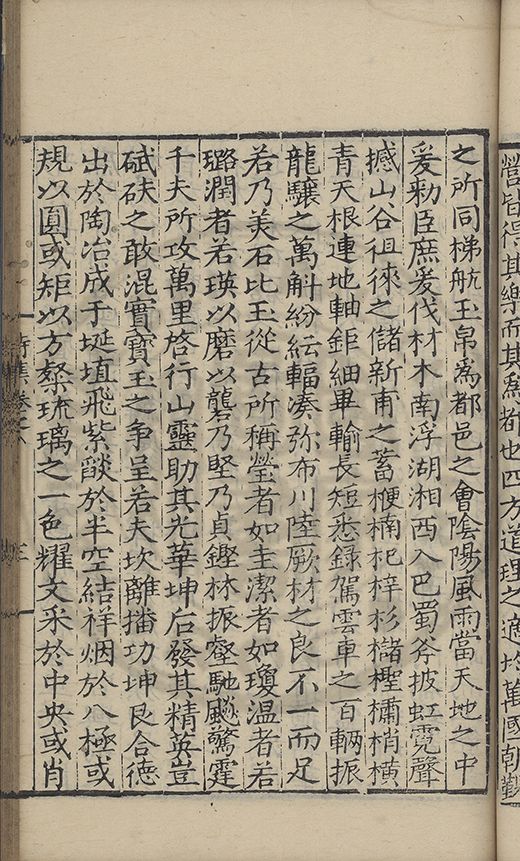 營皆得其樂而其爲都也四方道理之適均萬國朝覲
之所同梯航玉帛爲都邑之會陰陽風雨當天地之中
爰勑臣庶爰伐材木南浮湖湘西入巴蜀斧披虹霓聲
撼山谷徂徠之儲新甫之蓄楩楠杞梓杉櫧檉橚梢橫
青天根連地軸鉅細畢輸長短悉録駕雲車之百輛振
龍驤之萬斛紛紜輻湊弥布川陸厥材之良不一而足
若乃美石比玉從古所稱瑩者如圭潔者如瓊温者若
璐潤者若瑛以磨以礱乃堅乃貞鏗林振壑馳飈驚霆
千夫所攻萬里啓行山靈助其光華坤后發其精英豈
碔砆之敢混實寶玉之争呈若夫坎離播功坤艮合德
出於陶冶成于埏埴飛紫燄於半空結祥烟於八極或
規以圓或矩以方粲琉璃之一色耀文采於中央或肖
詩集卷之八
三